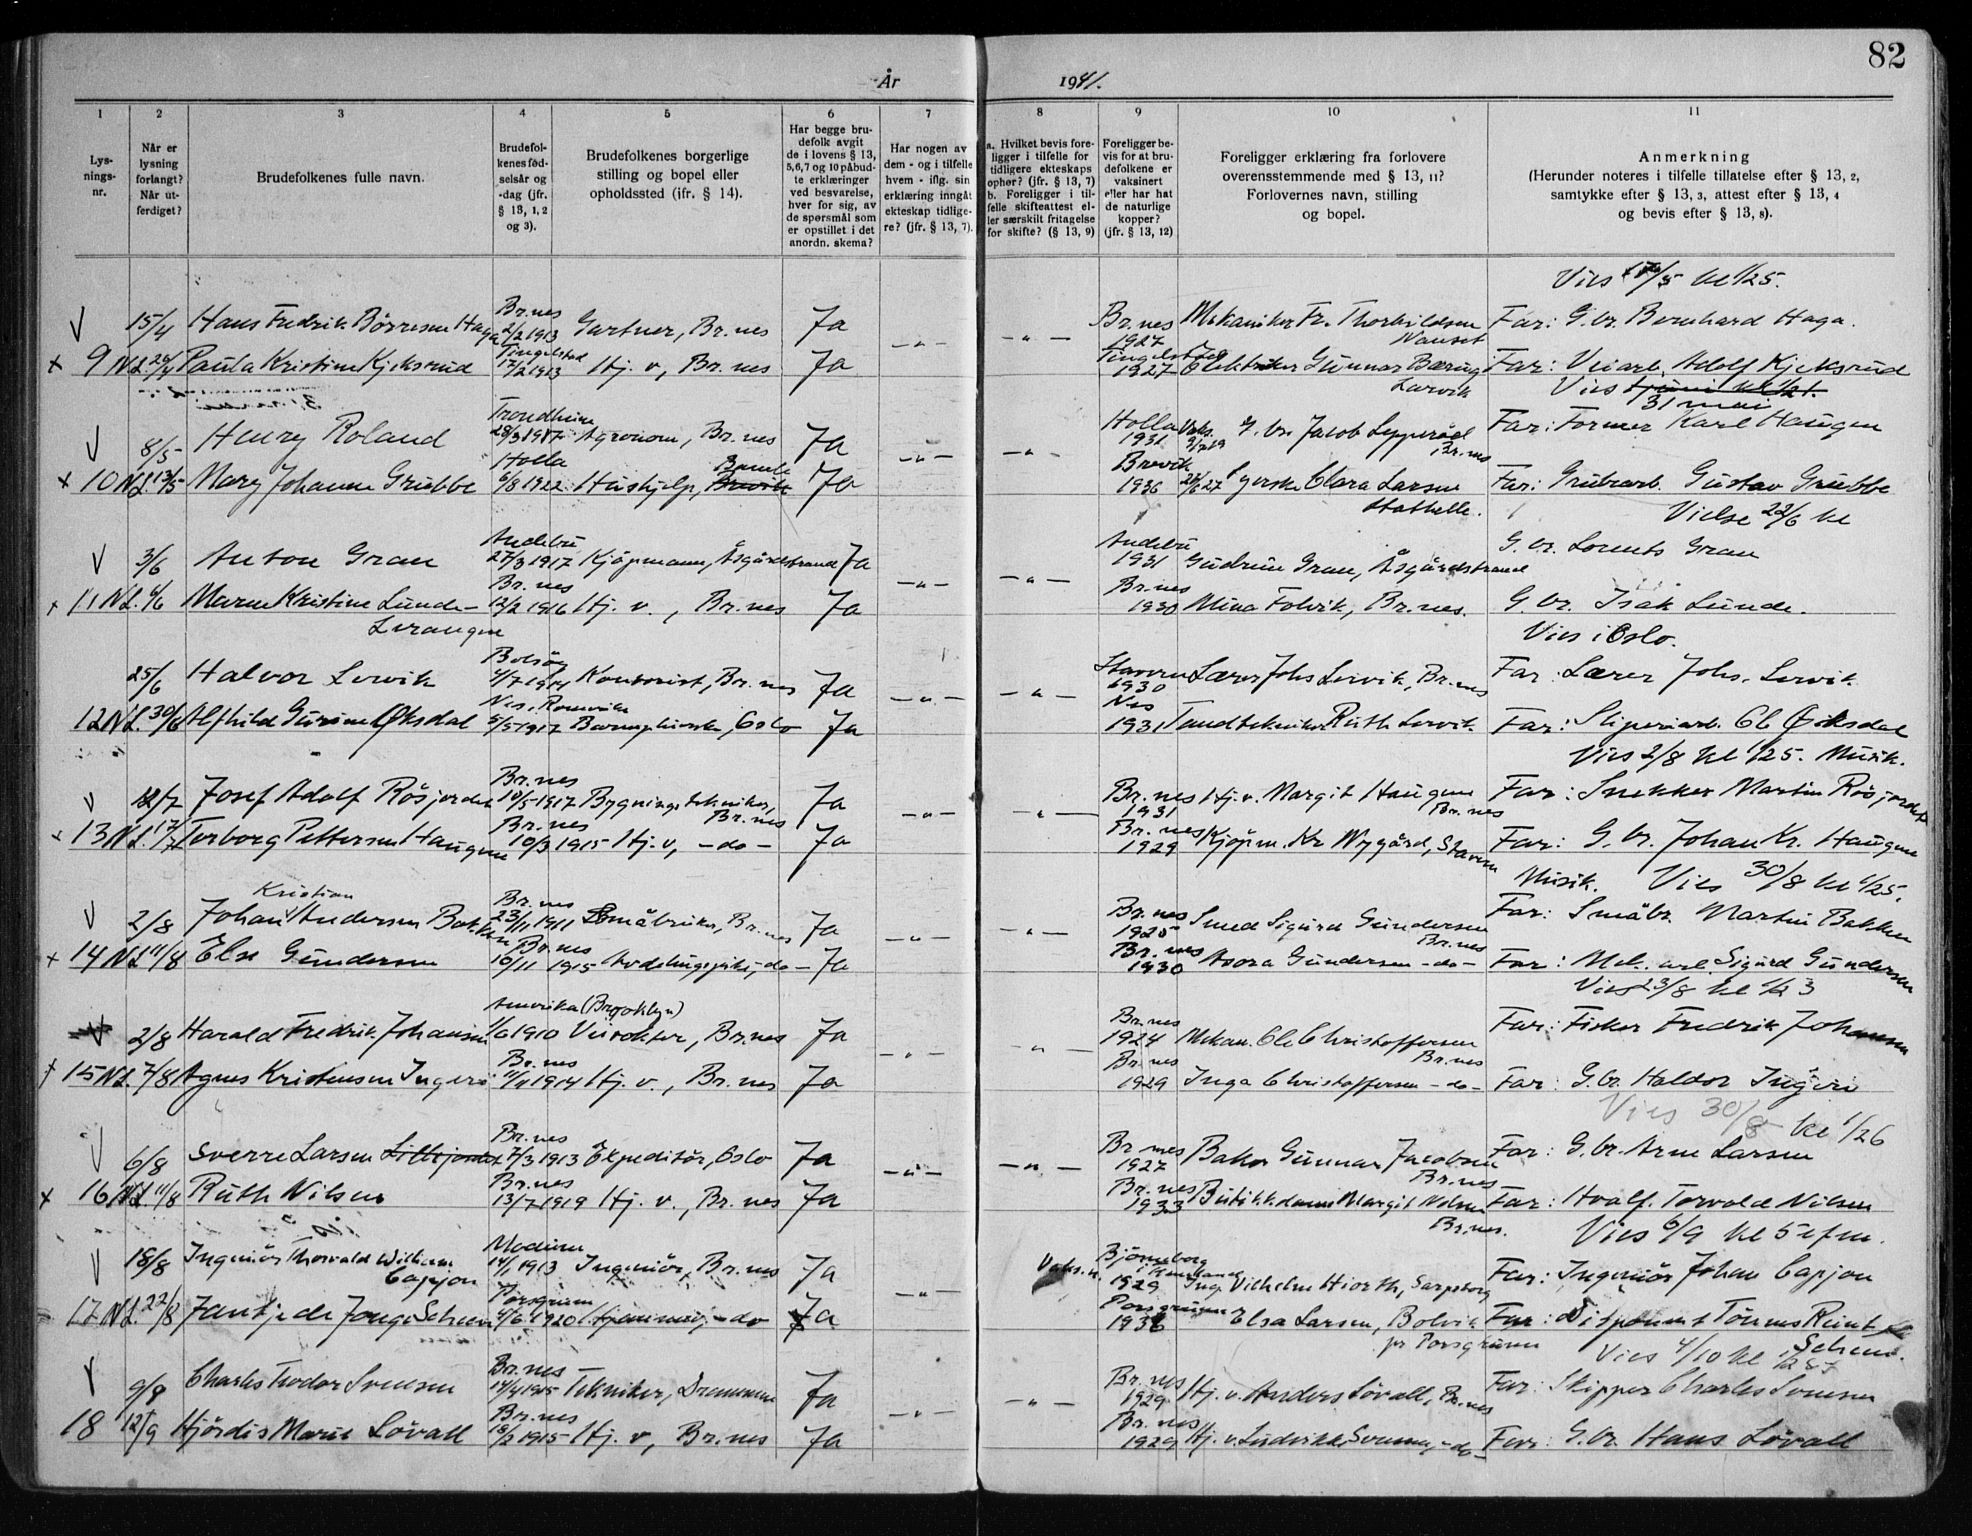 82
År 1941.
1 2 3 4 5 6 7 8 9 10 11
Lysningsnr.
Når er lysning forlangt? Når utferdiget?
Brudefolkenes fulle navn.
Brudefolkenes fødselsår og -dag (jfr. § 13, 1, 2 og 3).
Brudefolkenes borgerlige stilling og bopel eller opholdssted (jfr. § 14).
Har begge brudefolk avgit de i lovens § 13, 5,6,7 og 10 påbudte erklæringer ved besvarelse, hver for sig, av de spørsmål som er opstillet i det anordn. skema?
Har nogen av dem - og i tilfelle hvem - iflg. sin erklæring inngåt ekteskap tidligere? (jfr. § 13, 7).
a. Hvilket bevis foreligger i tilfelle for tidligere ekteskaps ophør? (jfr. § 13, 7) b. Foreligger i tilfelle skifteattest eller særskilt fritagelse for skifte? (§ 13, 9)
Foreligger bevis for at brudefolkene er vaksinert eller har hat de naturlige kopper? (jfr. § 13, 12)
Foreligger erklæring fra forlovere overensstemmende med § 13, 11? Forlovernes navn, stilling og bopel.
Anmerkning
(Herunder noteres i tilfelle tillatelse efter § 13, 2, samtykke efter § 13, 3, attest efter § 13, 4 og bevis efter § 13, 8).
Vies /5 kl 1/2 5.
15/4 Hans Fredrik Børresen Haga Br.nes 2/2 1913 Gartner, Br.nes Ja - " - - " - Br.nes 1927 Mekaniker Fr. Thorkildsen Nanset Far: G.br. Bernhard Haga.
x 9 N.L. Paula Kristine Kjeksrud Tingelstad 17/2 1913 Hj. v, Br.nes Ja Tingelstad 1927 Elektriker Gunnar Børug Larvik Far: Veiarb. Adolf Kjeksrud
Vies 31 mai
8/5 Henry Roland Trondheim 28/3 1917 Agronom, Br.nes Ja - " - - " - Holla 1931 G.br. Jacob Br.nes Far: Former Karl Haugen
x 10 N.L. 13/5 Mary Johanne Grubbe Holla 6/8 1922 Hushjelp, Bamble Brevik Ja Brevik 1936 Clara Larsen Stathelle. Far: Grubearb. Gustav Grubbe
Vielse 22/6 kl
3/6 Anton Gran Andebu 27/3 1917 Kjøpmann, Åsgårdstrand Ja - " - - " - Andebu 1931 Gudrun Gran, Åsgårdstrand G.br. Lorents Gran
x 11 N.L. 6/6 Maren Kristine Lunde- Br.nes 12/2 1916 Hj. v., Br.nes Ja Br.nes 1930 Mina Folvik, Br.nes. G.br. Isak Lunde.
Levangen
Vies i Oslo.
25/6 Halvor Lervik Bolsøy 4/7 1914 Kontorist, Br.nes Ja - " - - " - Stavern 1930 Lærer Johs Lervik, Br.nes Far: Lærer Johs. Lervik
12 N.L. 30/6 Alfhild Gurine Øksdal Nes, Romerike 5/5 1917 Oslo Ja Nes 1931 Tandtekniker Ruth Lervik Far: Sliperiarb. Ol Øiksdal
Vies 2/8 kl 1/2 5. Musik.
12/7 Josef Adolf Røsjordet Br.nes 18/5 1917 Bygningstekniker, Br.nes Ja - " - - " - Br.nes 1931 Hj. v. Margit Haugene Br.nes Far: Snekker Martin Røsjordet
x 13 N.L. 17/7 Torborg Pettersen Haugene Br.nes 10/3 1915 Hj. v, - do - Ja Br.nes 1929 Kjøpm. Kr Nygård, Stavern Far: G. br. Johan Kr. Haugene
Musik. Vies 30/8 kl 1/2 5.
2/8 Johan Kristian Andersen Bakken Br.nes 23/11 1911 Småbruker, Br.nes Ja - " - - " - Br.nes 1925 Smed Sigurd Gundersen Br.nes Far: Småbr. Martin Bakken
x 14 N.L. 11/8 Else Gundersen Br.nes 16/11 1915 - do - Ja Br.nes 1930 Asora Gundersen - do - Far: Mek. arb. Sigurd Gundersen
Vies 23/8 kl 1/2 3
2/8 Harald Fredrik Johansen Amerika (Brooklyn) 1/6 1910 Veivokter, Br.nes Ja - " - - " - Br.nes 1924 Mekan. Ole Christoffersen Br.nes Far: Fisker Fredrik Johansen
15 N.L. 7/8 Agnes Kristensen Ingerø Br.nes 11/11 1914 Hj. v., Br.nes Ja Br.nes 1929 Inga Christoffersen - do - Far: G.br. Haldor Ingerø
Vies 30/8 kl 1/2 6
6/8 Sverre Larsen Lillejordet Br.nes 7/3 1913 Ekspeditør, Oslo Ja - " - - " - Br.nes 1927 Baker Gunnar Jacobsen Br.nes Far: G.br. Arne Larsen
x 16 N.L. 11/8 Ruth Nilsen Br.nes 13/7 1919 Hj. v., Br.nes Ja Br.nes 1933 Butikkdame Margit Nilsen Br.nes. Far: Hvalf. Torvald Nilsen
Vies 6/9 kl 5 efm.
18/8 Ingeniør Thorvald Wilhelm Capjon Modum 14/1 1913 Ingeniør, Br.nes Ja - " - Bjørneborg 1929 Ing. Vilhelm Hiorth, Sarpsborg Far: Ingeniør Johan Capjon
17 N.L. 22/8 Jantje de Jonge Scheen Porsgrunn 4/6 1920 Hjemmev, - do Ja Porsgrunn 1936 Elsa Larsen, Bolvik pr Porsgrunn Far: Disponent Tønnes Reint Scheen.
Vies 4/10 kl 1/2 5
9/9 Charles Teodor Svensen Br.nes 14/4 1915 Tekniker, Drammen Ja - " - - " - Br.nes 1929 Hj. v. Anders Løvall, Br.nes Far: Skipper Charles Svensen
18 12/9 Hjørdis Marie Løvall Br.nes 18/2 1915 Hj. v, Br.nes Ja Br.nes 1929 Hj. v. Ludvikke Svensen, - do - Far: G.br. Hans Løvall